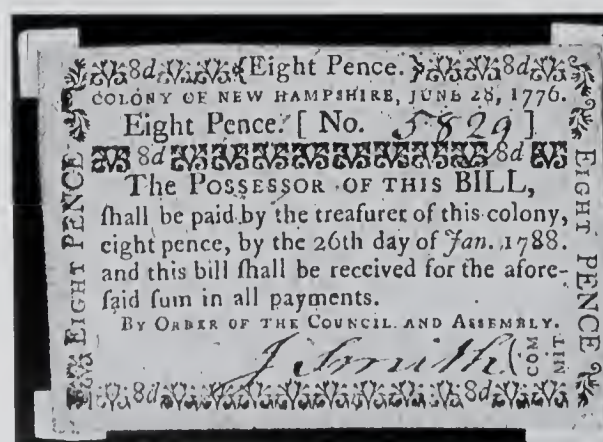 8d {Eight Pence.} 8d
COLONY OF NEW HAMPSHIRE, JUNE 28, 1776.
Eight Pence. [ No. 5829 ]
8d 8d
The POSSESSOR OF THIS BILL,
ſhall be paid by the treaſurer of this colony,
eight pence, by the 26th day of Jan. 1788.
and this bill ſhall be received for the afore-
ſaid ſum in all payments.
BY ORDER OF THE COUNCIL AND ASSEMBLY.
J Smith { COM
MIT.
8d 8d
EIGHT PENCE
EIGHT PENCE